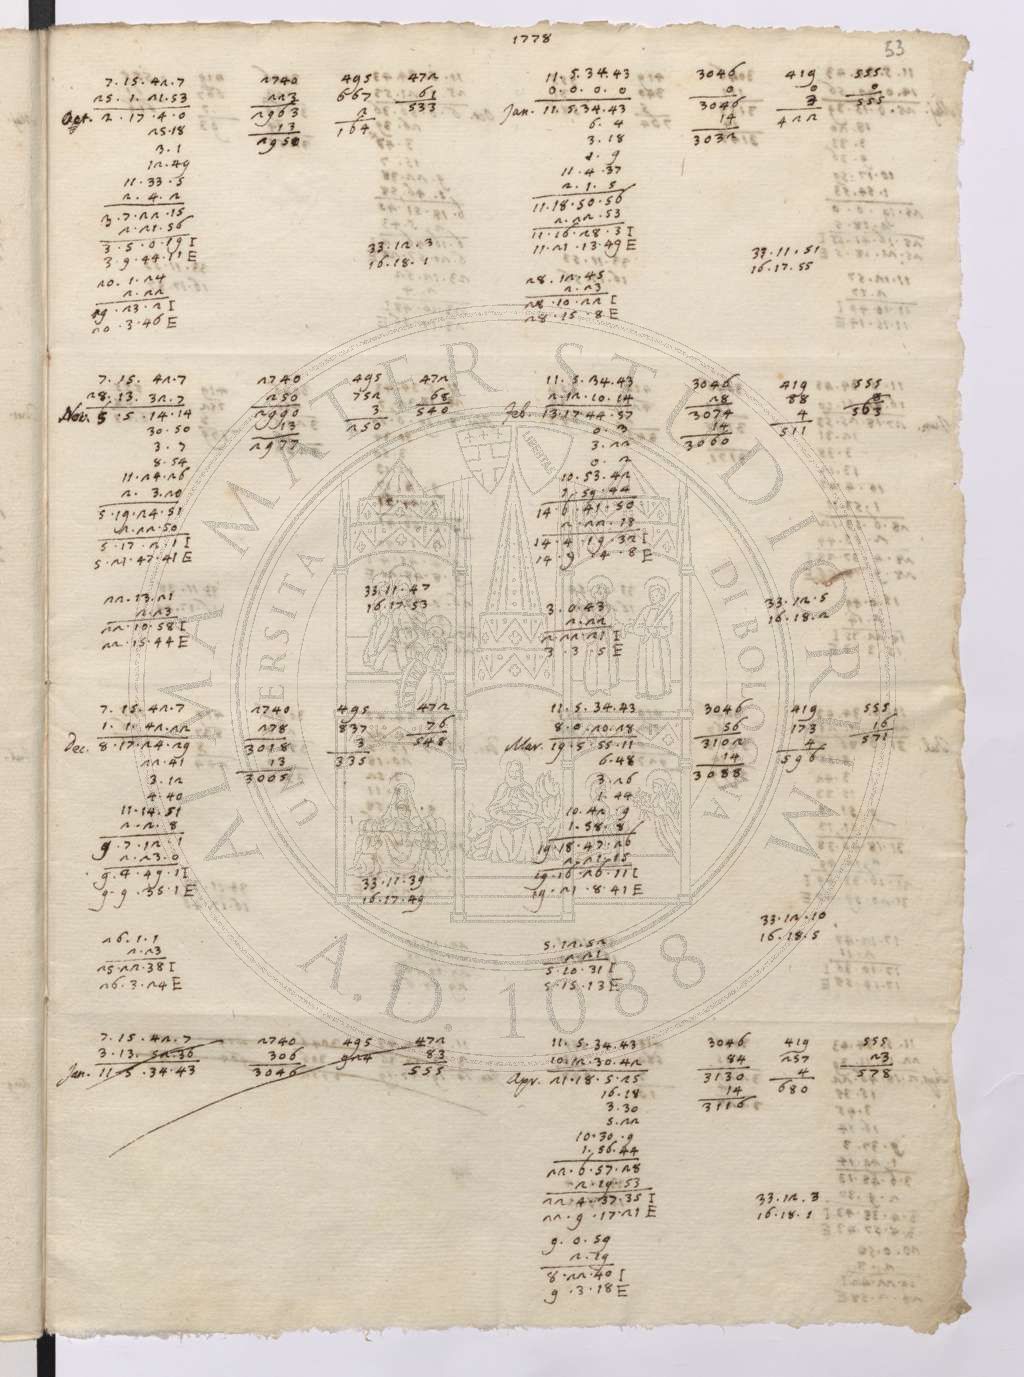 1778
53
7.15.42.7 2740 495 472
25.1.21.53 223 667 61
Oct. 2.17.4.0 2963 2 533
25.18 13 164
3.1 2950
12.49
11.33.5
2.4.2
3.7.22.15
2.21.56
3.5.0.19 I
3.9.44.11 E
33.12.3
16.18.1
20.1.24
2.22
19.23.2 I
20.3.46 E
7.15.42.7 2740 495 472
28.13.32.7 250 752 68
Nov. 5.5.14.14 2990 3 540
30.50 13 250
3.7 2977
8.54
11.24.26
2.3.20
5.19.24.51
2.22.50
5.17.2.1 I
5.21.47.41 E
33.11.47
16.17.53
22.13.21
2.23
22.10.58 I
22.15.44 E
7.15.42.7 2740 495 472
1.1.42.22 278 837 76
Dec. 8.17.24.29 3018 3 548
22.41 13 335
3.12 3005
4.40
11.14.51
2.2.8
9.7.12.1
2.23.0
9.4.49.1 I
9.9.35.1 E
33.11.39
16.17.49
26.1.1
2.23
25.22.38 I
26.3.24 E
7.15.42.7 2740 495 472
3.13.52.36 306 924 83
Jan. 11.5.34.43 3046 555
11.5.34.43 3046 419 555
0.0.0.0 0 0 0
Jan. 11.5.34.43 3046 3 555
6.4 14 422
3.18 3032
1.9
11.4.37
2.1.5
11.18.50.56
2.22.53
11.16.28.3 I
11.21.13.49 E
33.11.51
16.17.55
28.12.45
2.23
28.10.22 I
28.15.8 E
11.5.34.43 3046 419 555
2.12.10.14 28 88 8
Feb. 13.17.44.57 3074 4 563
0.3 14 511
3.22 3060
0.2
10.53.42
1.59.44
14.6.41.50
2.22.18
14.4.19.32 I
14.9.4.8 E
33.12.5
16.18.2
3.0.43
2.22
2.22.21 I
3.3.5 E
11.5.34.43 3046 419 555
8.0.20.28 56 173 16
Mar. 19.5.55.11 3102 4 571
6.48 14 596
3.26 3088
1.44
10.42.9
1.58.8
19.18.47.26
2.21.15
19.16.26.11 I
19.21.8.41 E
33.12.10
16.18.5
5.12.52
2.21
5.10.31 I
5.15.13 E
11.5.34.43 3046 419 555
10.12.30.42 84 257 23
Apr. 21.18.5.25 3130 4 578
16.18 14 680
3.30 3116
5.22
10.30.9
1.56.44
22.6.57.28
2.19.53
22.4.37.35 I
22.9.17.21 E
33.12.3
16.18.1
9.0.59
2.19
8.22.40 I
9.3.18 E
ALMA MATER STUDIORUM
UNIVERSITÀ DI BOLOGNA
A.D. 1088